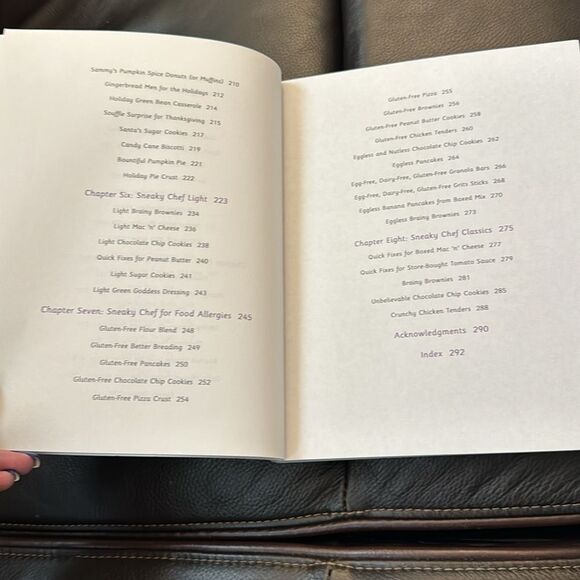 Sammy's Pumpkin Spice Donuts (or Muffins) 210
Gingerbread Men for the Holidays 212
Holiday Green Bean Casserole 214
Souffle Surprise for Thanksgiving 215
Santa's Sugar Cookies 217
Candy Cane Biscotti 219
Bountiful Pumpkin Pie 221
Holiday Pie Crust 222
Chapter Six: Sneaky Chef Light 223
Light Brainy Brownies 234
Light Mac 'n' Cheese 236
Light Chocolate Chip Cookies 238
Quick Fixes for Peanut Butter 240
Light Sugar Cookies 241
Light Green Goddess Dressing 243
Chapter Seven: Sneaky Chef for Food Allergies 245
Gluten-Free Flour Blend 248
Gluten-Free Better Breading 249
Gluten-Free Pancakes 250
Gluten-Free Chocolate Chip Cookies 252
Gluten-Free Pizza Crust 254
Gluten-Free Pizza 255
Gluten-Free Brownies 256
Gluten-Free Peanut Butter Cookies 258
Gluten-Free Chicken Tenders 260
Eggless and Nutless Chocolate Chip Cookies 262
Eggless Pancakes 264
Egg-Free, Dairy-Free, Gluten-Free Granola Bars 266
Egg-Free, Dairy-Free, Gluten-Free Grits Sticks 268
Eggless Banana Pancakes from Boxed Mix 270
Eggless Brainy Brownies 273
Chapter Eight: Sneaky Chef Classics 275
Quick Fixes for Boxed Mac 'n' Cheese 277
Quick Fixes for Store-Bought Tomato Sauce 279
Brainy Brownies 281
Unbelievable Chocolate Chip Cookies 285
Crunchy Chicken Tenders 288
Acknowledgments 290
Index 292